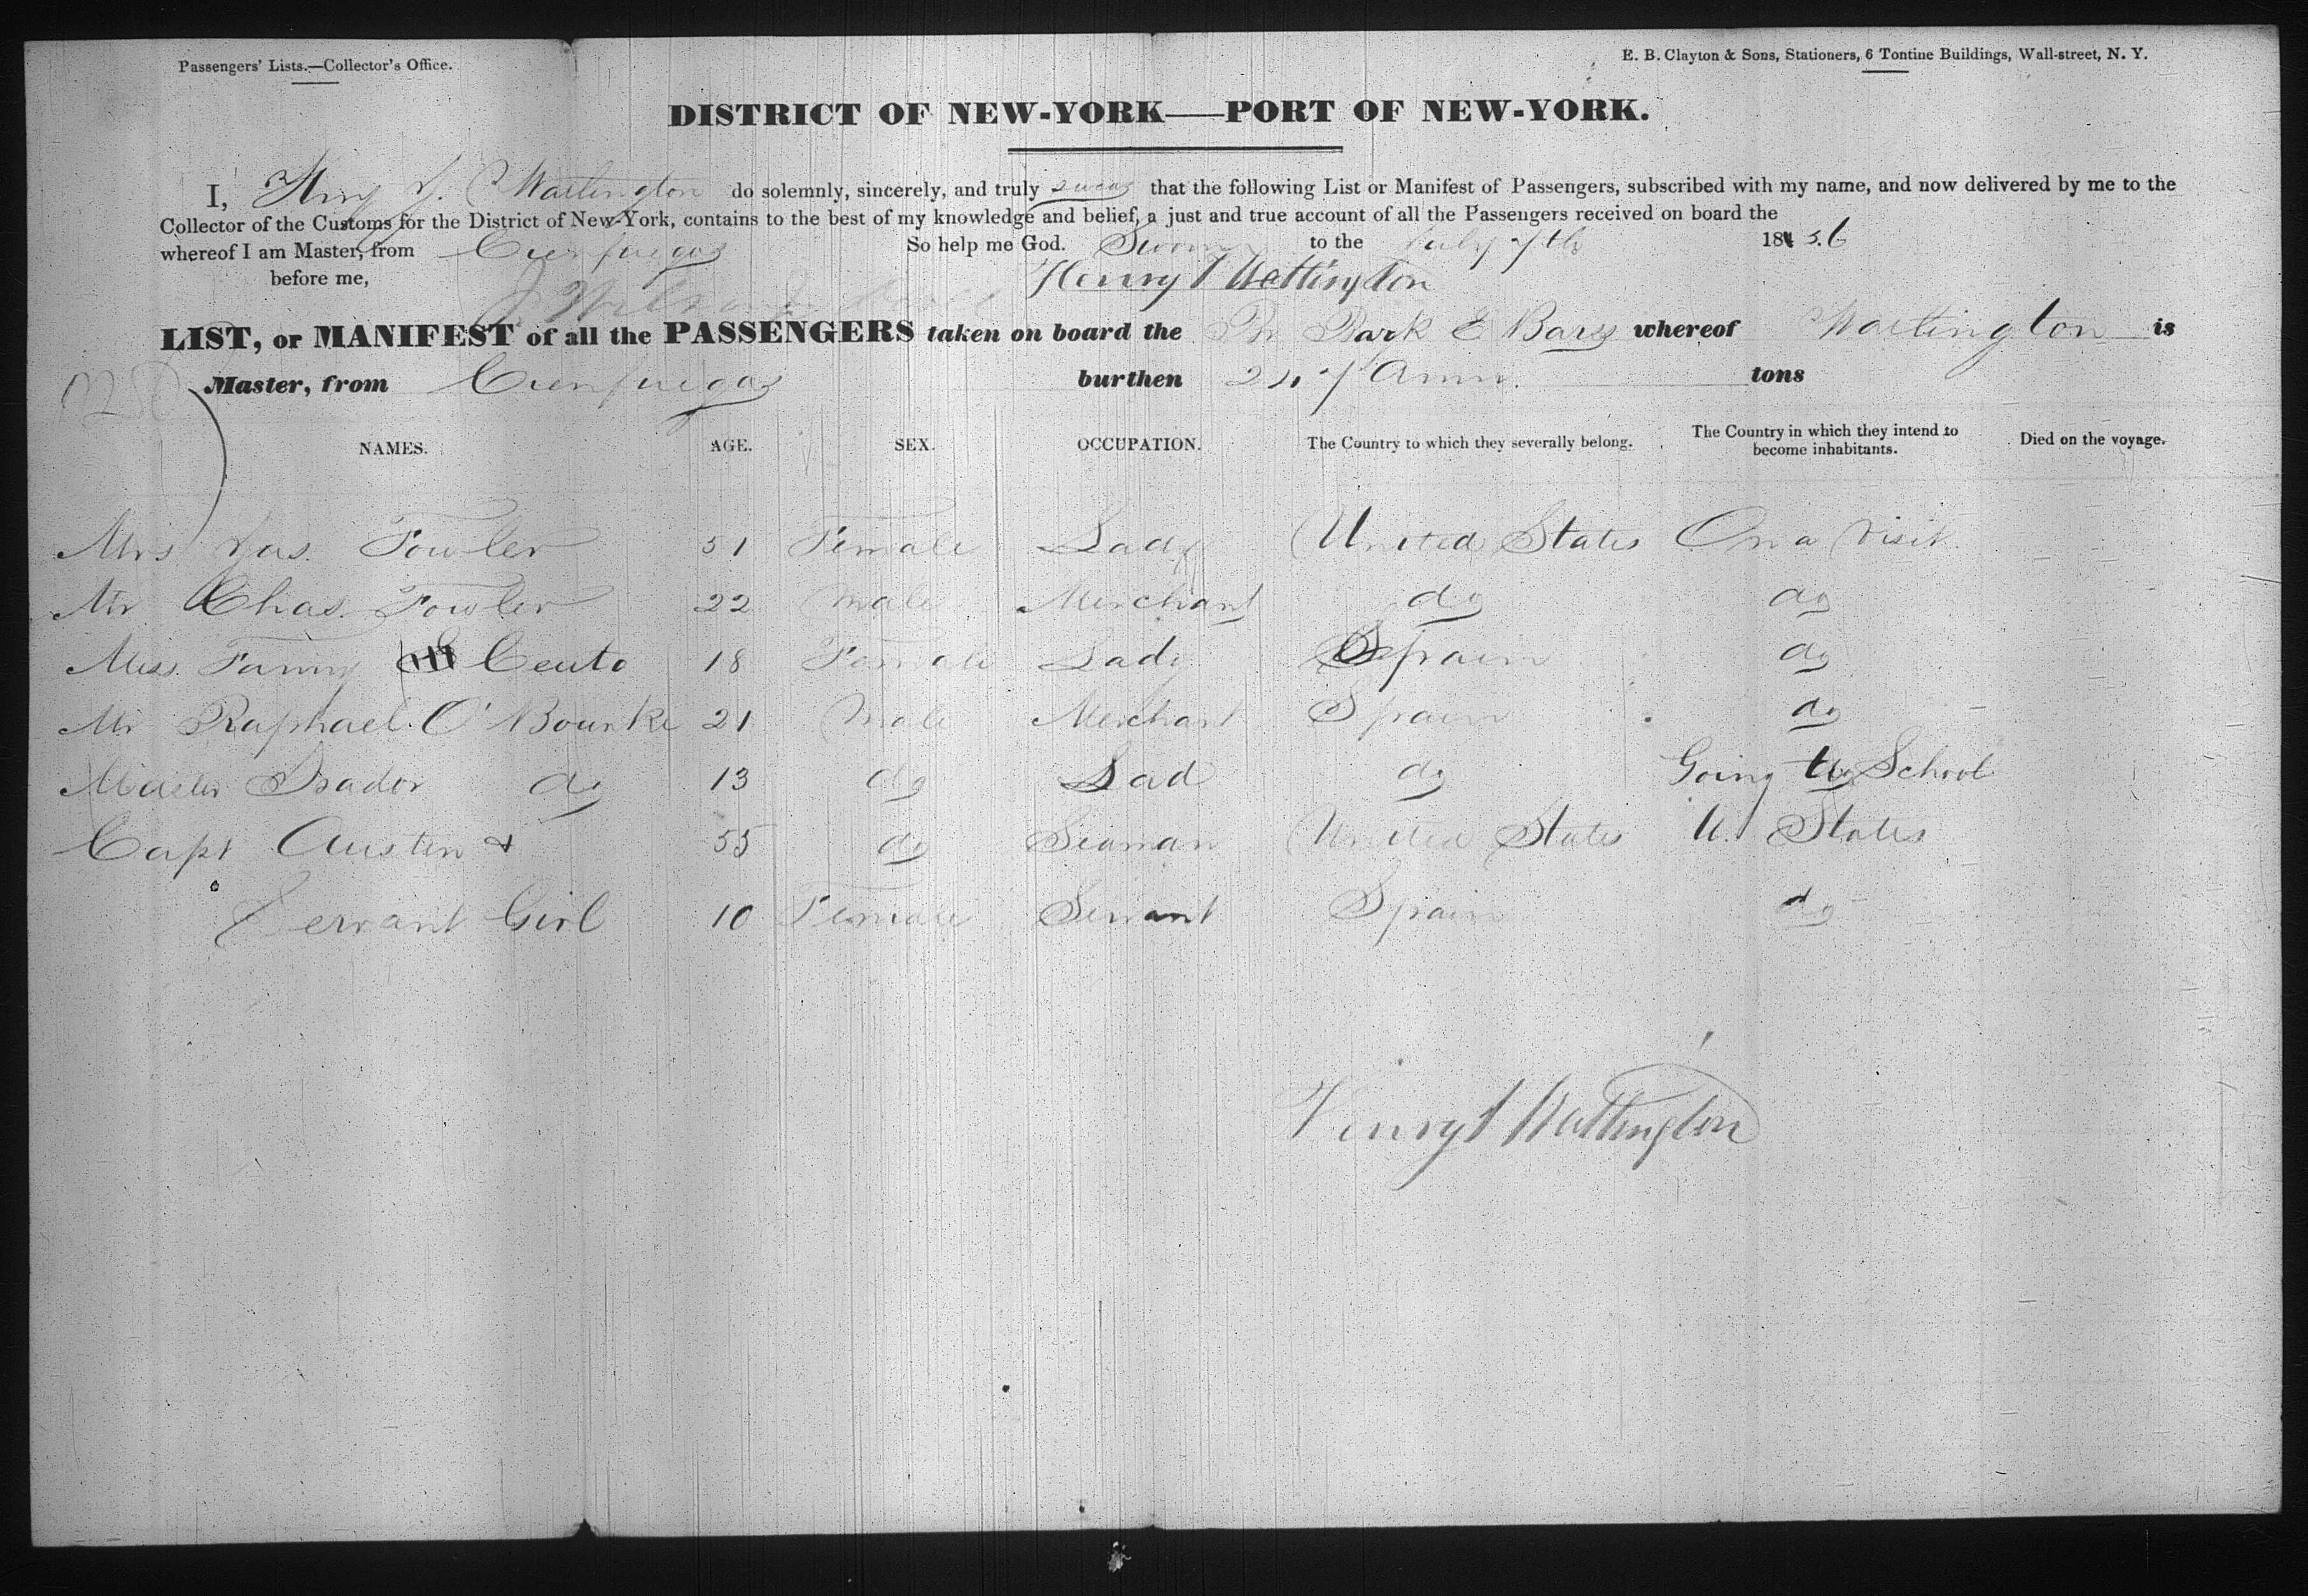 Passengers' Lists.—Collector's Office.
E. B. Clayton & Sons, Stationers, 6 Tontine Buildings, Wall-street, N. Y.
DISTRICT OF NEW-YORK——PORT OF NEW-YORK.
I, Henry J. Watlington do solemnly, sincerely, and truly swear that the following List or Manifest of Passengers, subscribed with my name, and now delivered by me to the
Collector of the Customs for the District of New-York, contains to the best of my knowledge and belief, a just and true account of all the Passengers received on board the
whereof I am Master, from Cienfuegos So help me God. Sworn to the July 7th 1856
before me, Henry J Watlington
LIST, or MANIFEST of all the PASSENGERS taken on board the Br Bark E Bary whereof Watlington is
Master, from Cienfuegos burthen 247 tons
NAMES. AGE. SEX. OCCUPATION. The Country to which they severally belong. The Country in which they intend to become inhabitants. Died on the voyage.
Mrs Jas. Fowler 51 Female Lady United States On a Visit
Mr Chas. Fowler 22 Male Merchant do do
Miss. Fanny Ceuto 18 Female Lady Spain do
Mr Raphael O'Bourke 21 Male Merchant Spain do
Master Isador do 13 do Lad do Going to School
Capt Austen & 55 do Seaman United States U. States
Servant Girl 10 Female Servant Spain do
Henry J Watlington